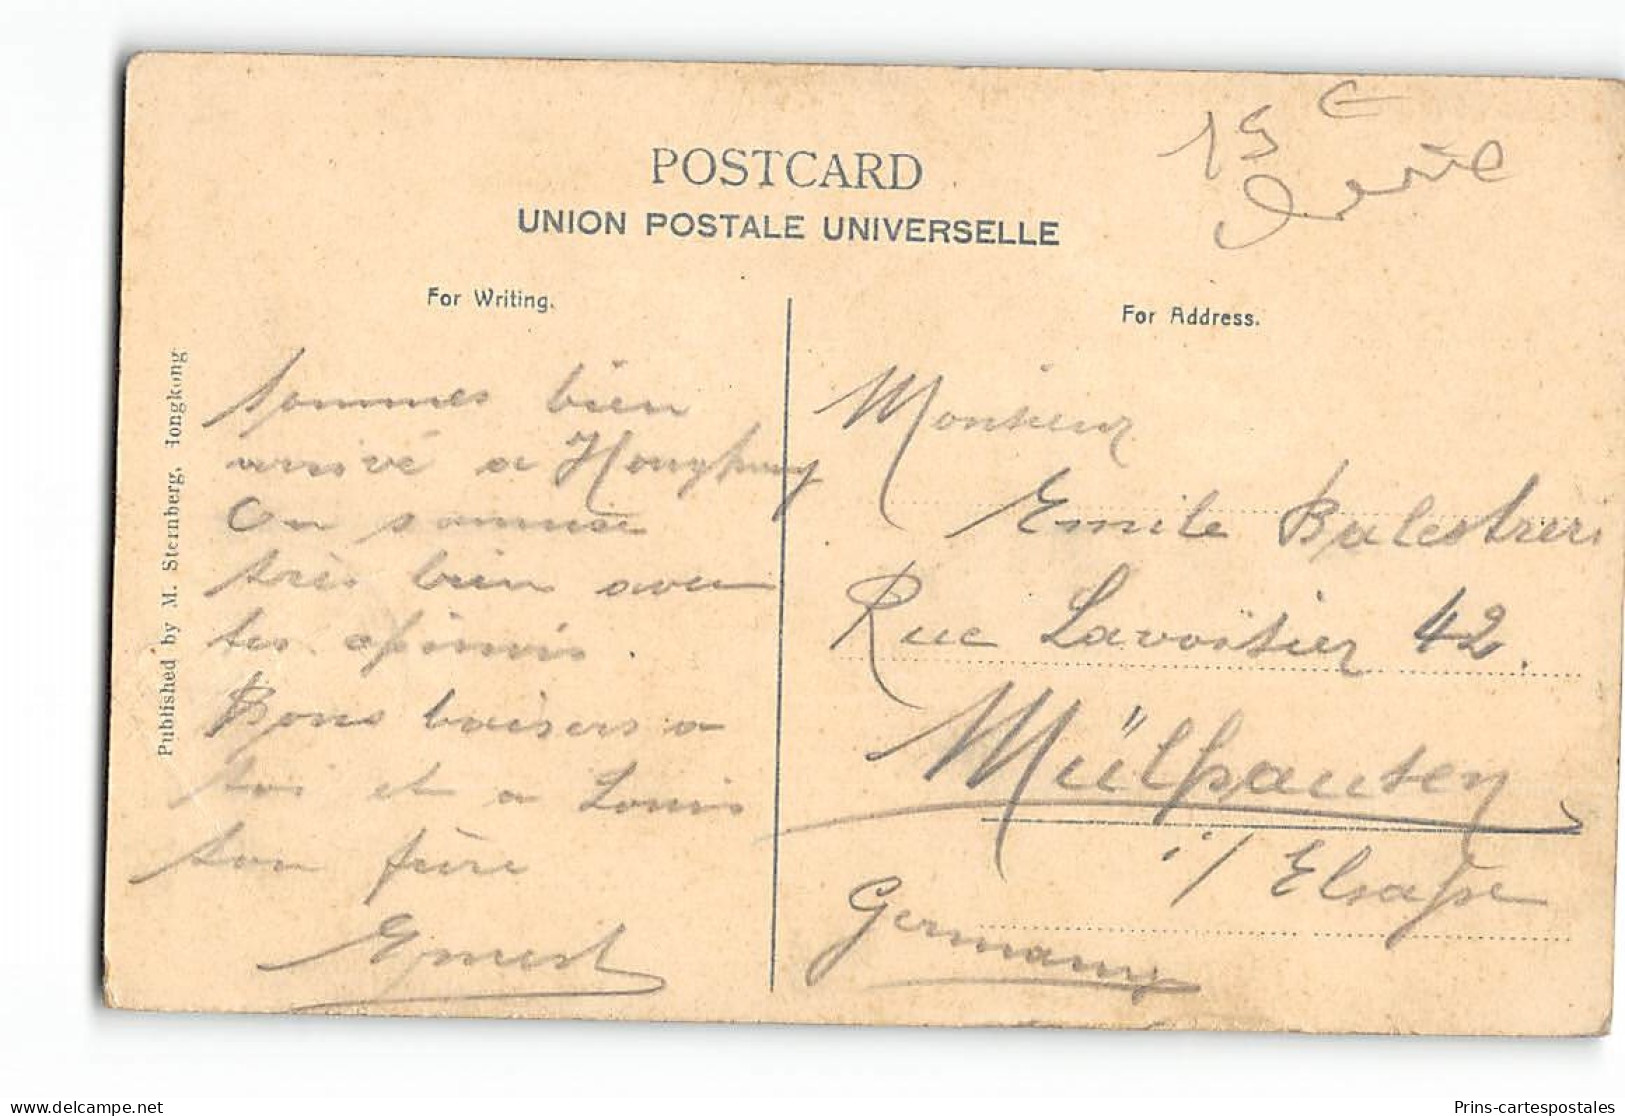 15 €
POSTCARD
UNION POSTALE UNIVERSELLE
For Writing.
Sommes bien
arrivé a Hongkong
On s'amuse
très bien avec
les
Bons baisers a
toi et a Louis
ton frère
Ernest
For Address.
Monsieur
Emile Balestreri
Rue Lavoisier 42.
Mülhausen
i/ Elsasse
Germany
Published by M. Sternberg, Hongkong
delcampe.net
Prins-cartespostales